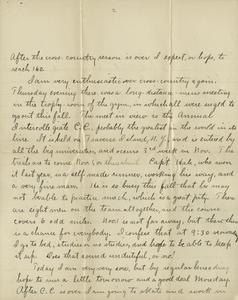 2
After the cross-country season is over I expect, or hope, to
reach 162.
I am very enthusiastic over cross-country again.
Thursday evening there was a long-distance-men's meeting
in the trophy room of the gym, in which all were urged to
go out this fall. The meet in view is the Annual
Intercollegiate C.C., probably the greatest in the world in its
line. It is held on Travers Island, N.Y. and is entered by
all the big universities and occurs 3rd week in Nov. The
trials are to come Nov. 6 or thereabout. Capt. Hale, who won
it last year, is a self made runner, working his way, and
a very fine man. He is so busy this fall that he may
not be able to practice much, which is a great pity. There
are eight men on the team altogether, and the course
covers 6 odd miles. Now I'm not far away, but then there
is a chance for everybody. I confess that at 9:30 now
I go to bed, studies or no studies, and hope to be able to keep
it up. Does that sound undutiful, or no?
Today I am very very sore, but by regular exercising
hope to run a little tomorrow and a good deal Monday.
After C.C. is over I am going to skate and work in